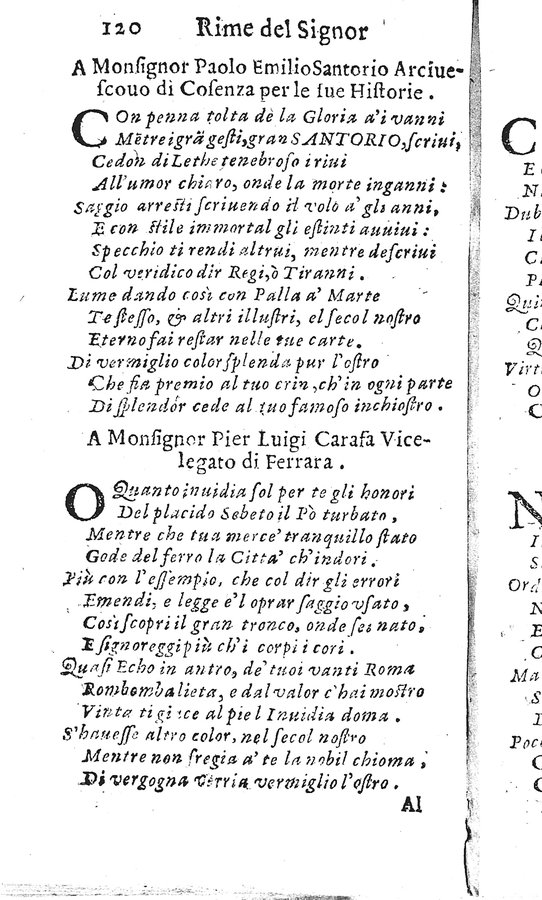 120 Rime del Signor
A Monſignor Paolo Emilio Santorio Arciue-
ſcouo di Coſenza per le ſue Hiſtorie.
COn penna tolta de la Gloria a'i vanni
Mẽtre i grã geſti, gran SANTORIO, ſcriui,
Cedon di Lethe tenebroſo i riui
All'umor chiaro, onde la morte inganni:
Saggio arreſti ſcriuendo il volo a' gli anni,
E con ſtile immortal gli eſtinti auuiui:
Specchio ti rendi altrui, mentre deſcriui
Col veridico dir Regi, ò Tiranni.
Lume dando così con Palla a' Marte
Te ſteſſo, & altri illuſtri, el ſecol noſtro
Eterno fai reſtar nelle tue carte.
Di vermiglio color ſplenda pur l'oſtro
Che fia premio al tuo crin, ch'in ogni parte
Di ſplendor cede al tuo famoſo inchioſtro.
A Monſignor Pier Luigi Carafa Vice-
legato di Ferrara.
O Quanto inuidia ſol per te gli honori
Del placido Sebeto il Pò turbato,
Mentre che tua merce' tranquillo ſtato
Gode del ferro la Citta' ch'indori.
Più con l'eſſempio, che col dir gli errori
Emendi, e legge e'l oprar ſaggio vſato,
Così ſcopri il gran tronco, onde ſei nato,
E ſignoreggi più ch'i corpi i cori.
Quaſi Echo in antro, de' tuoi vanti Roma
Rombomba lieta, e dal valor c'hai moſtro
Vinta ti giace al piel Inuidia doma.
S'haueſſe altro color, nel ſecol noſtro
Mentre non fregia a' te la nobil chioma,
Di vergogna verria vermiglio l'oſtro.
Al
C
E
N
Dub
I
C
P
Qui
C
Q
Virt
O
C
N
I
S
Ord
N
E
C
Ma
S
D
Poc
C
C